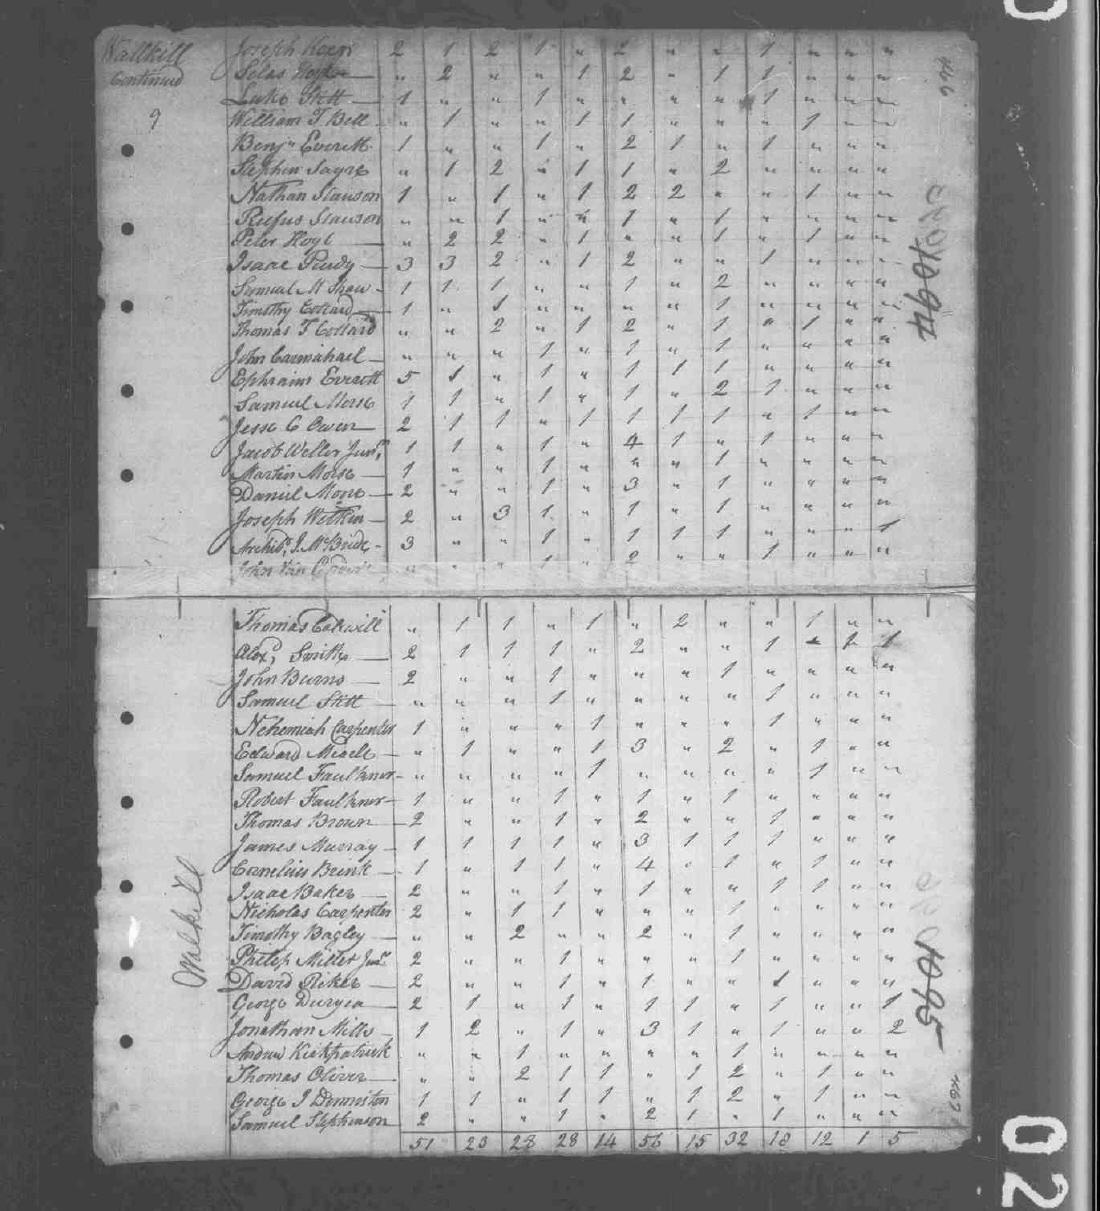 Wallkill Joseph Horn 2 1 2 1 " 2 " " 1 " " "
Continued Silas Hoyt " 2 " " 1 2 " 1 1 " " "
Luke Stitt 1 " " 1 " " " " 1 " " "
9 William T Bell " 1 " " 1 1 " " " 1 " "
Benjn Everett 1 " " 1 " 2 1 " 1 " " "
Stephen Sayre " 1 2 " 1 1 " 2 " " " "
Nathan Slauson 1 " 1 " 1 2 2 " " 1 " "
Rufus Slauson " " 1 " " 1 " 1 " " " "
Peter Hoyt " 2 2 " 1 " " 1 " 1 " "
Isaac Purdy 3 3 2 " 1 2 " " 1 " " "
Samuel M Shaw 1 1 1 " " 1 " 2 " " " "
Timothy Collard 1 " 1 " " " " 1 " " " "
Thomas T Collard " " 2 " 1 2 " 1 " 1 " "
John Carmichael " " " 1 " 1 " 1 " " " "
Ephraim Everett 5 1 " 1 " 1 1 1 " " " "
Samuel Morse 1 1 " 1 " 1 " 2 1 " " "
Jesse C Owen 2 1 1 " 1 1 1 1 " 1 " "
Jacob Weller Junr 1 1 " 1 " 4 1 " 1 " " "
Martin Morse 1 " " 1 " " " 1 " " " "
Daniel More 2 " " 1 " 3 " 1 " " " "
Joseph Wilkin 2 " 3 1 " 1 " 1 " " " "
Archibd. J. McBride 3 " " 1 " 1 1 1 1 " " 1
John Van " " " 1 " 2 " " 1 " " "
Thomas " 1 1 " 1 " 2 " " 1 " "
Alexd Smith 2 1 1 1 " 2 " " 1 1 1
John Burns 2 " " 1 " " " 1 " " " "
Samuel Stitt " " " 1 " " " " 1 " " "
Nehemiah Carpenter 1 " " " 1 " " " 1 " " "
Edward " 1 " " 1 3 " 2 " 1 " "
Samuel Faulkner " " " " 1 " " " " 1 " "
Robert Faulkner 1 " " 1 " 1 " 1 " " " "
Thomas Brown 2 " " 1 " 2 " " 1 " " "
James Murray 1 1 1 1 " 3 1 1 1 " " "
Cornelius Brink 1 " 1 1 " 4 " 1 " 1 " "
Isaac Baker 2 " " 1 " 1 " " 1 1 " "
Nicholas Carpenter 2 " 1 1 " " " 1 " " " "
Timothy Bagley " " 2 " " 2 " 1 " " " "
Philip Miller Junr 2 " " 1 " " " 1 " " " "
David Riker 2 " " 1 " 1 " " 1 " " "
George Duryea 2 1 " 1 " 1 1 " 1 " " 1
Jonathan Mills 1 2 " 1 " 3 1 " 1 " " 2
Andrew Kirkpatrick " " 1 " " " " 1 " " " "
Thomas Oliver " " 2 1 1 " 1 2 " 1 " "
George I Denniston 1 1 " 1 1 " 1 2 " 1 " "
Samuel Stephenson 2 " " 1 " 2 1 " 1 " " "
51 23 28 28 14 56 15 32 18 12 1 5
Wallkill
1094
1095
02